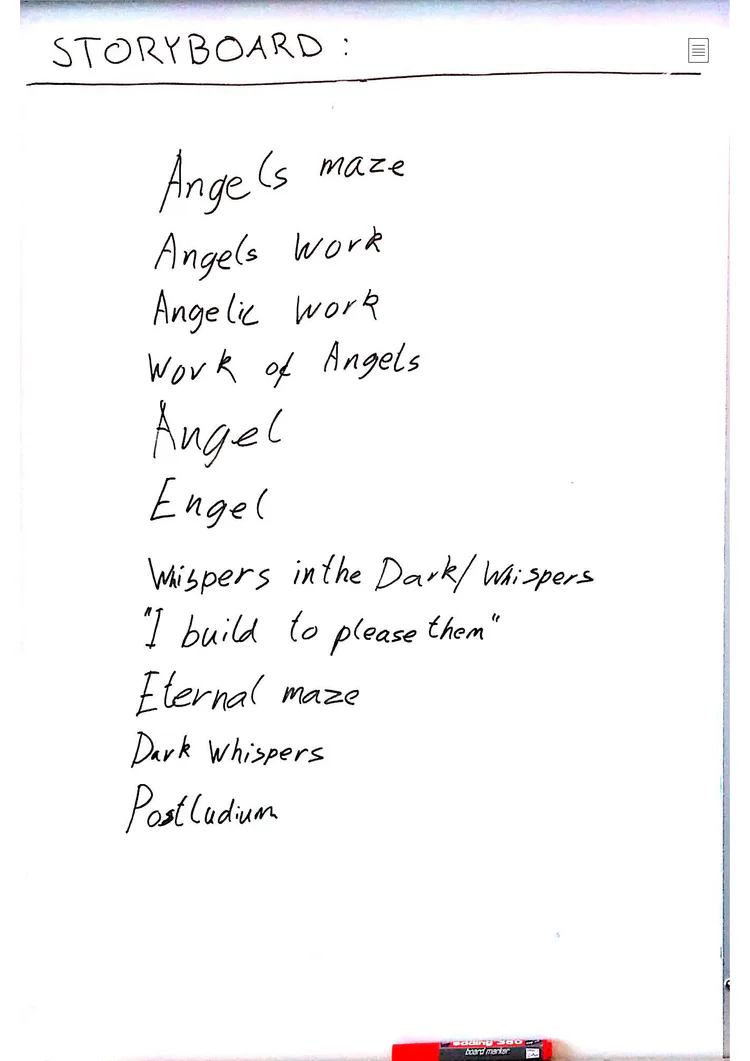 STORYBOARD :
Angels maze
Angels Work
Angelic Work
Work of Angels
Angel
Engel
Whispers in the Dark/Whispers
"I build to please them"
Eternal maze
Dark Whispers
Postludium
board marker